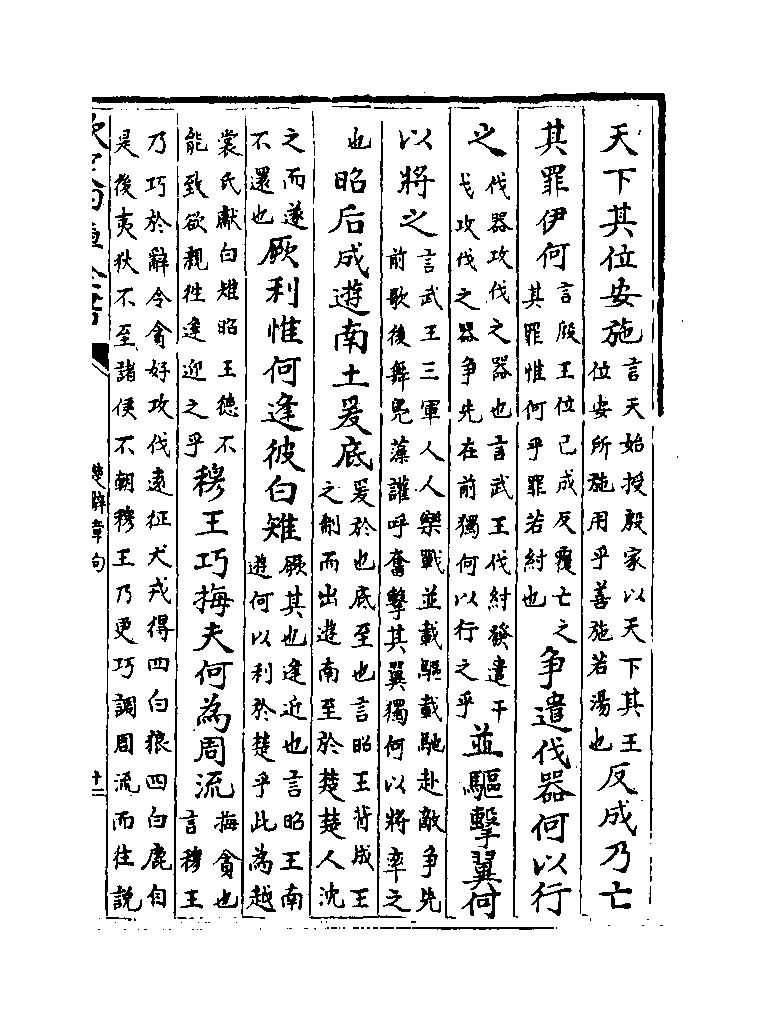 天下其位安施言天始授殷家以天下其王位安所施用乎善施若湯也反成乃亡
其罪伊何言殷王位已成反覆亡之其罪惟何乎罪若紂也争遣伐器何以行
之伐器攻伐之器也言武王伐紂發遣干戈攻伐之器争先在前獨何以行之乎並驅擊翼何
以將之言武王三軍人人樂戰並載驅載馳赴敵争先前歌後舞鳧藻讙呼奮擊其翼獨何以將率之
也昭后成遊南土爰底爰於也底至也言昭王背成王之制而出遊南至於楚楚人沈
之而遂不還也厥利惟何逢彼白雉厥其也逢近也言昭王南遊何以利於楚乎此為越
裳氏獻白雉昭王德不能致欲親往逢迎之乎穆王巧梅夫何為周流梅貪也言穆王
乃巧於辭令貪好攻伐遠征犬戎得四白狼四白鹿自是後夷狄不至諸侯不朝穆王乃更巧調周流而往說
欽定四庫全書
楚辭章句
十二